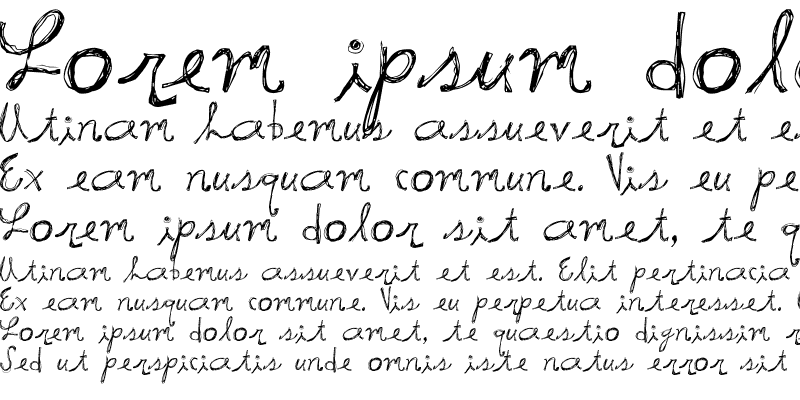 Lorem ipsum dolo
Utinam habemus assueverit et e
Ex eam nusquam commune. Vis eu pe
Lorem ipsum dolor sit amet, te q
Utinam habemus assueverit et est. Elit pertinacia
Ex eam nusquam commune. Vis eu perpetua interesset.
Lorem ipsum dolor sit amet, te quaestio dignissim r
Sed ut perspiciatis unde omnis iste natus error sit